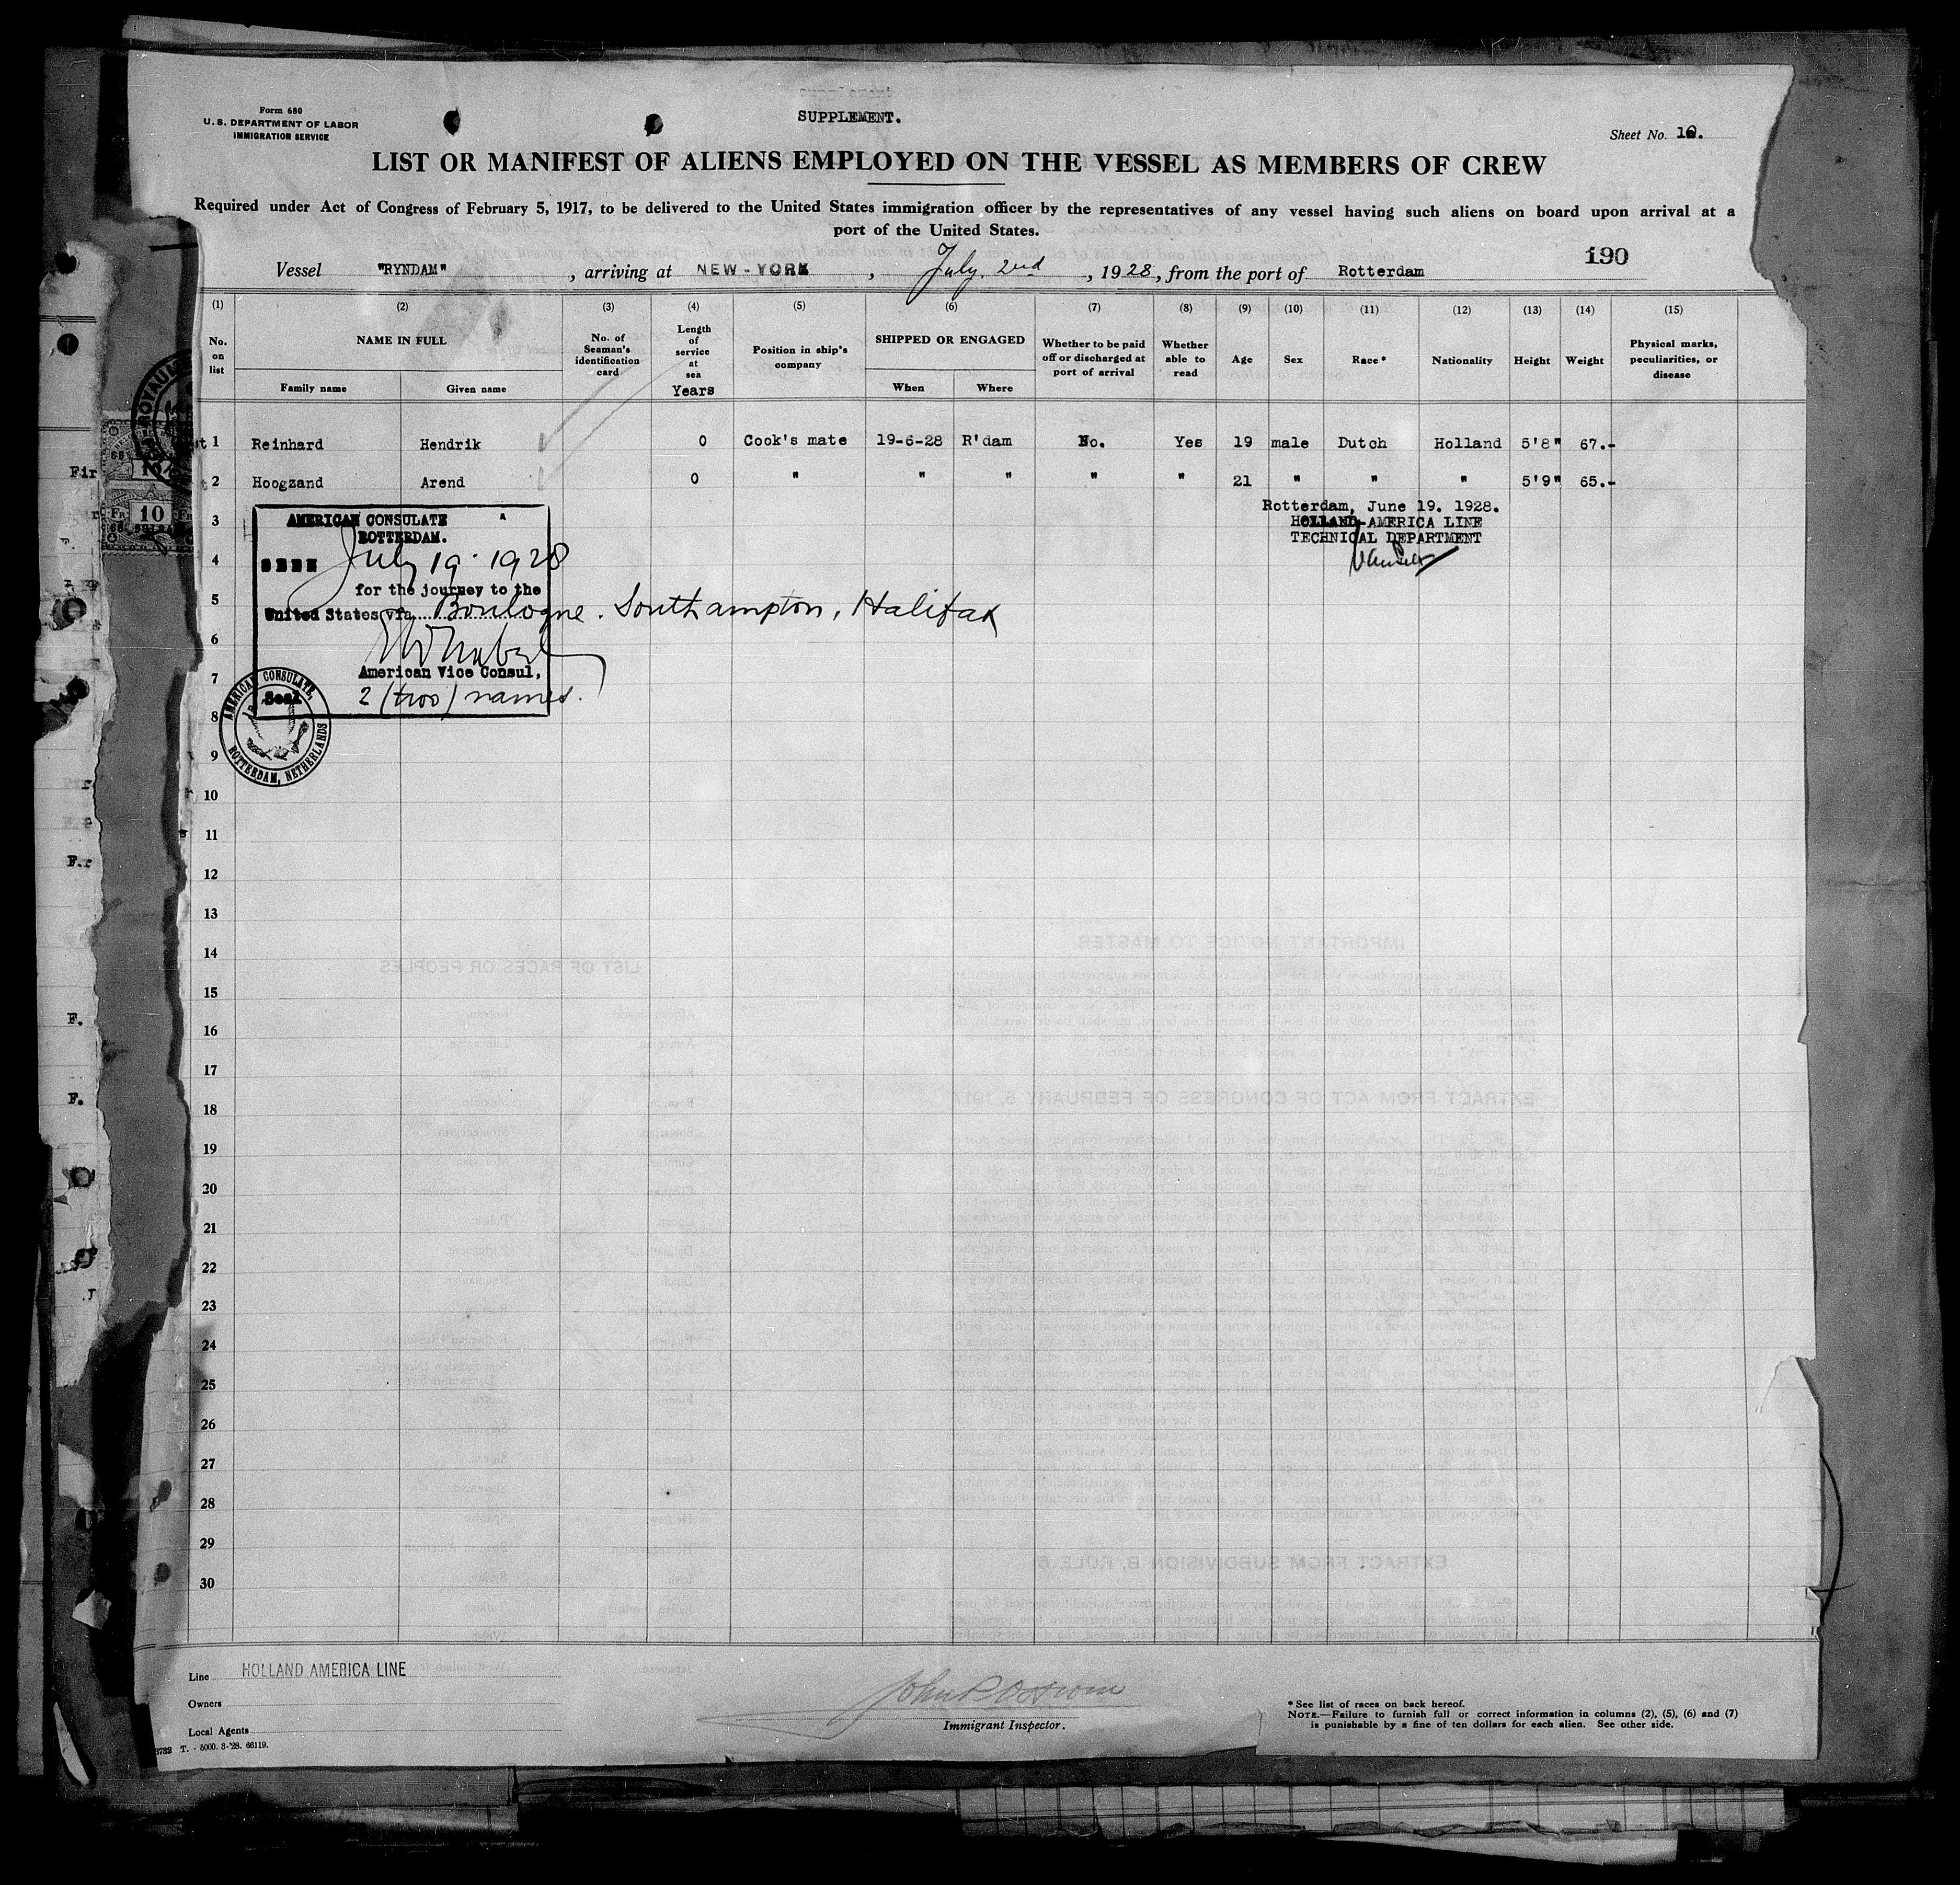 Form 680
U. S. DEPARTMENT OF LABOR
IMMIGRATION SERVICE
SUPPLEMENT.
Sheet No.
LIST OR MANIFEST OF ALIENS EMPLOYED ON THE VESSEL AS MEMBERS OF CREW
Required under Act of Congress of February 5, 1917, to be delivered to the United States immigration officer by the representatives of any vessel having such aliens on board upon arrival at a
port of the United States.
190
Vessel "RYNDAM", arriving at NEW-YORK, July. 2nd, 1928, from the port of Rotterdam
(1) (2) (3) (4) (5) (6) (7) (8) (9) (10) (11) (12) (13) (14) (15)
No. on list
NAME IN FULL
Family name Given name
No. of Seaman's identification card
Length of service at sea Years
Position in ship's company
SHIPPED OR ENGAGED
When Where
Whether to be paid off or discharged at port of arrival
Whether able to read
Age Sex Race* Nationality Height Weight
Physical marks, peculiarities, or disease
1 Reinhard Hendrik 0 Cook's mate 19-6-28 R'dam No. Yes 19 male Dutch Holland 5'8" 67.-
2 Hoogzand Arend 0 " " " " " 21 " " " 5'9" 65.-
Rotterdam, June 19. 1928.
HOLLAND-AMERICA LINE
TECHNICAL DEPARTMENT
3
AMERICAN CONSULATE
ROTTERDAM.
4
SEEN July 19 - 1928
for the journey to the
5
United States via Boulogne. Southampton, Halifax
6
American Vice Consul,
7
Seal 2 (two) names.
AMERICAN CONSULATE,
ROTTERDAM, NETHERLANDS
8
9
10
11
12
13
14
15
16
17
18
19
20
21
22
23
24
25
26
27
28
29
30
Fir
F.r
F.
F.
10
Line HOLLAND AMERICA LINE
Owners
Local Agents
T. - 5000. 3-'28. 66119.
Immigrant Inspector.
* See list of races on back hereof.
NOTE.—Failure to furnish full or correct information in columns (2), (5), (6) and (7)
is punishable by a fine of ten dollars for each alien. See other side.